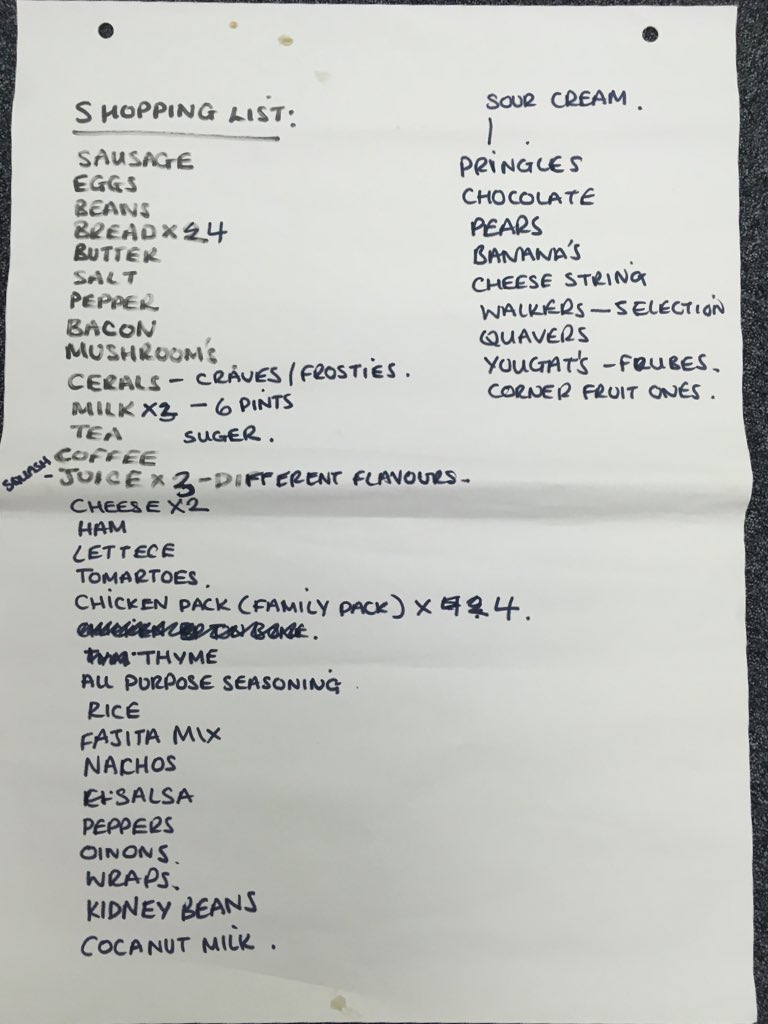 SHOPPING LIST:
SAUSAGE
EGGS
BEANS
BREAD X 4
BUTTER
SALT
PEPPER
BACON
MUSHROOM'S
CERALS - CRAVES / FROSTIES.
MILK X2 - 6 PINTS
TEA SUGER.
COFFEE
SQUASH - JUICE X 3 - DIFFERENT FLAVOURS -
CHEESE X2
HAM
LETTECE
TOMARTOES.
CHICKEN PACK (FAMILY PACK) X 4.
THYME
ALL PURPOSE SEASONING
RICE
FAJITA MIX
NACHOS
SALSA
PEPPERS
OINONS.
WRAPS.
KIDNEY BEANS
COCANUT MILK.
SOUR CREAM.
PRINGLES
CHOCOLATE
PEARS
BANANA'S
CHEESE STRING
WALKERS - SELECTION
QUAVERS
YOUGAT'S - FRUBES.
CORNER FRUIT ONES.